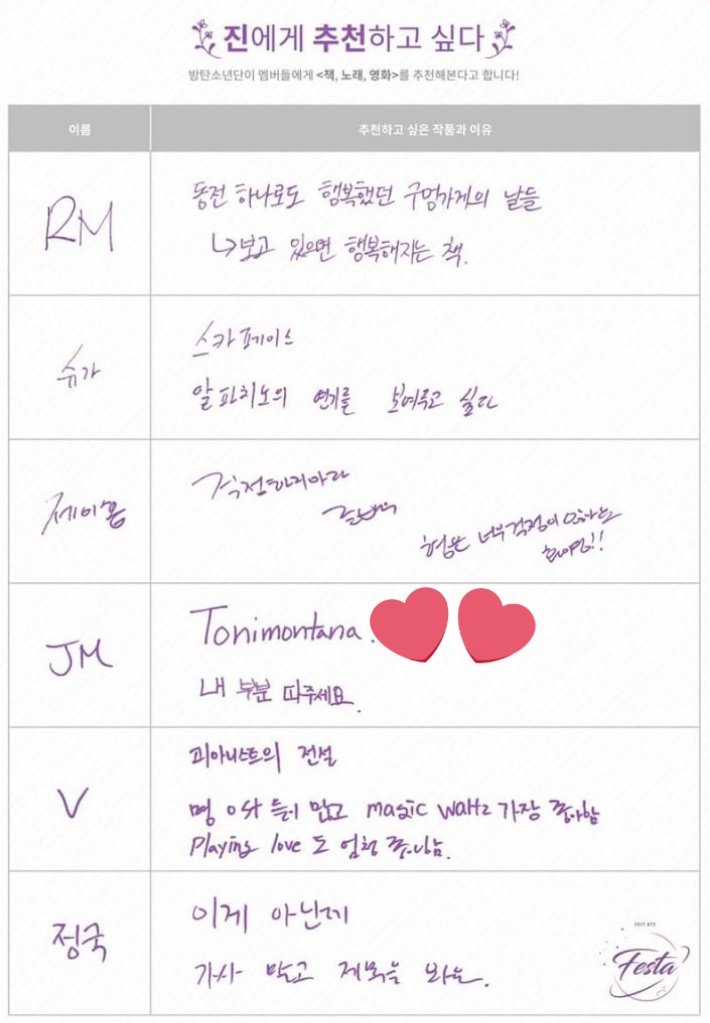 진에게 추천하고 싶다
방탄소년단이 멤버들에게 <책, 노래, 영화>를 추천해본다고 합니다!
이름 추천하고 싶은 작품과 이유
RM
동전 하나로도 행복했던 구멍가게의 날들
↳보고 있으면 행복해지는 책.
슈가
스카페이스
알파치노의 연기를 보여주고 싶다
제이홉
걱정하지마라
형은 너무 걱정이
JM
Tonimontana.
내 부분 따주세요.
V
피아니스트의 전설
명 OST 들이 많고 magic waltz 가장 좋아함
Playing love 도 엄청 좋아함.
정국
이게 아닌데
가사 말고 제목을 봐요.
Festa